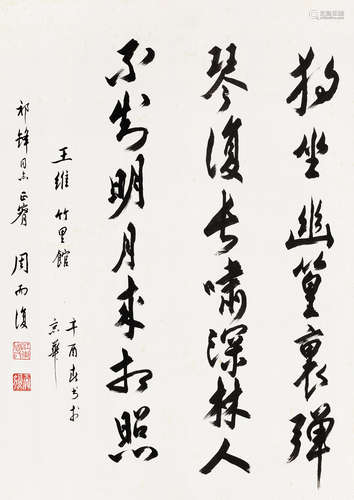 独坐幽篁裏弹
琴復长啸深林人
不知明月来相照
王维 竹里館
辛酉春书於
京華
祁锋同志正腕
周而復